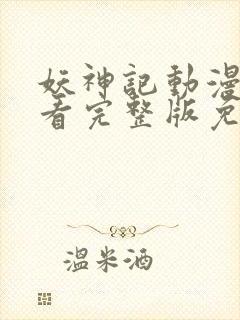 妖神記動漫
看完整版免
溫米酒